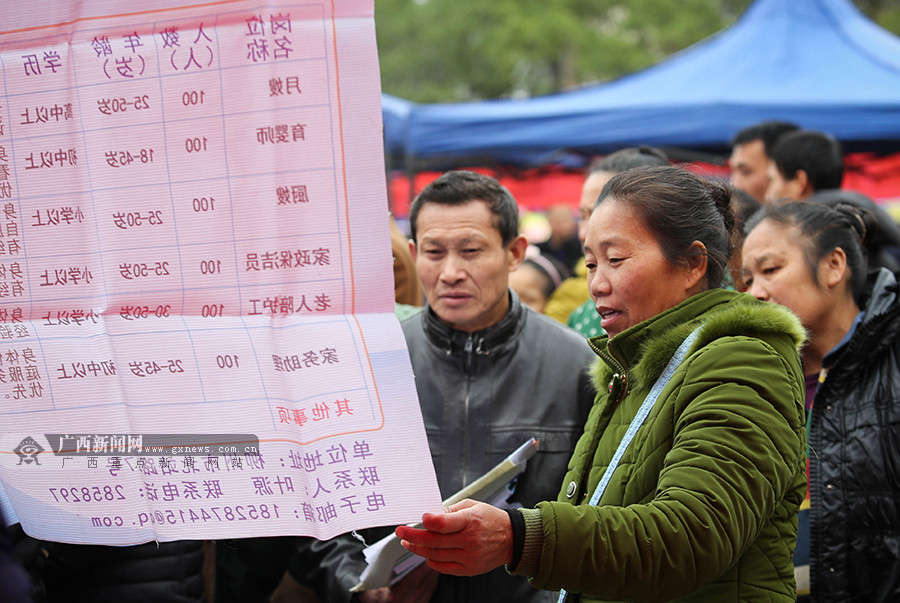 岗位名称 人数（人） 年龄（岁） 学历
月嫂 100 25-50岁 高中以上
育婴师 100 18-45岁 初中以上
厨嫂 100 25-50岁 小学以上
家政保洁员 100 25-50岁 小学以上
老人陪护工 100 30-50岁 小学以上
家务助理 100 25-45岁 初中以上
其他事项
单位地址：
联系人：叶源 联系电话：2858297
电子邮箱：1852874415@qq.com
广西新闻网
www.gxnews.com.cn
广西重点新闻网站